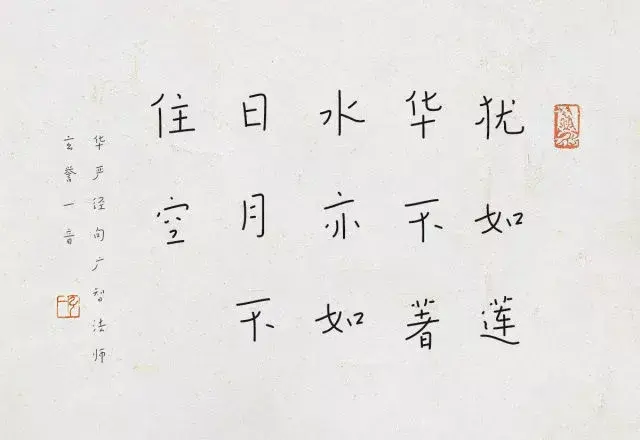 犹如莲
华不著
水亦如
日月不
住空
华严径句广智法师
玄誉一音